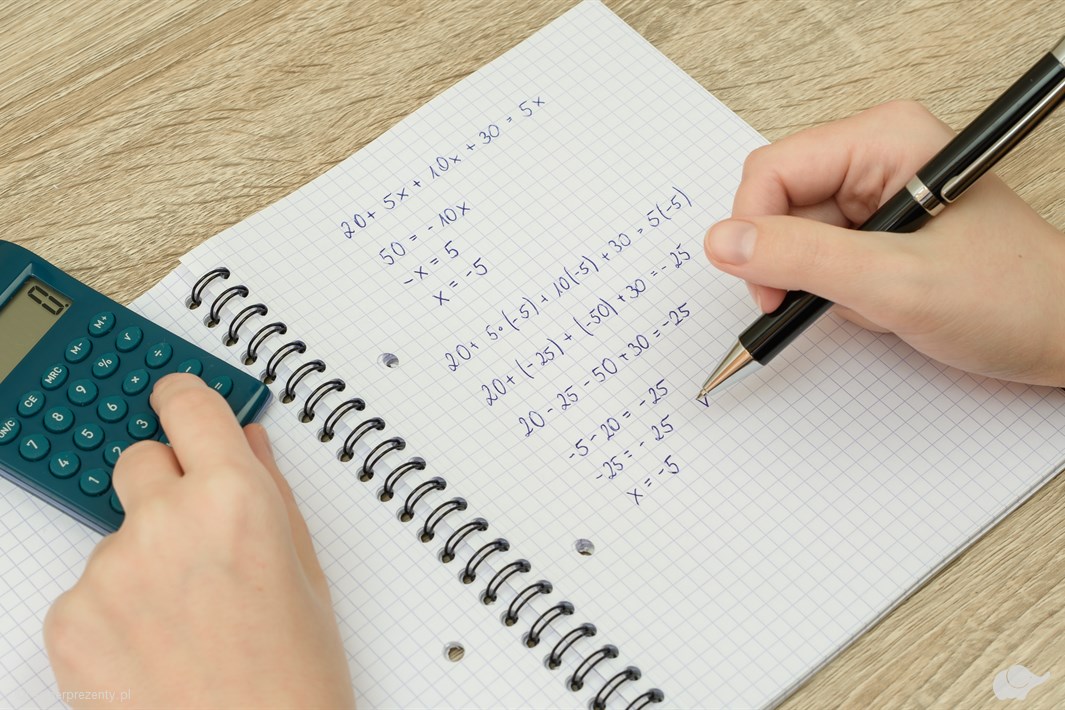 20 + 5x + 10x + 30 = 5x
50 = - 10x
- x = 5
x = - 5
20 + 5 • (-5) + 10(-5) + 30 = 5(-5)
20 + (-25) + (-50) + 30 = - 25
20 - 25 - 50 + 30 = - 25
- 5 - 20 = - 25
- 25 = - 25
x = - 5
M+
M- √
MRC % ÷
CE 9 × -
ON/C 8 6 =
7 5 3
4 2
1
erprezenty.pl